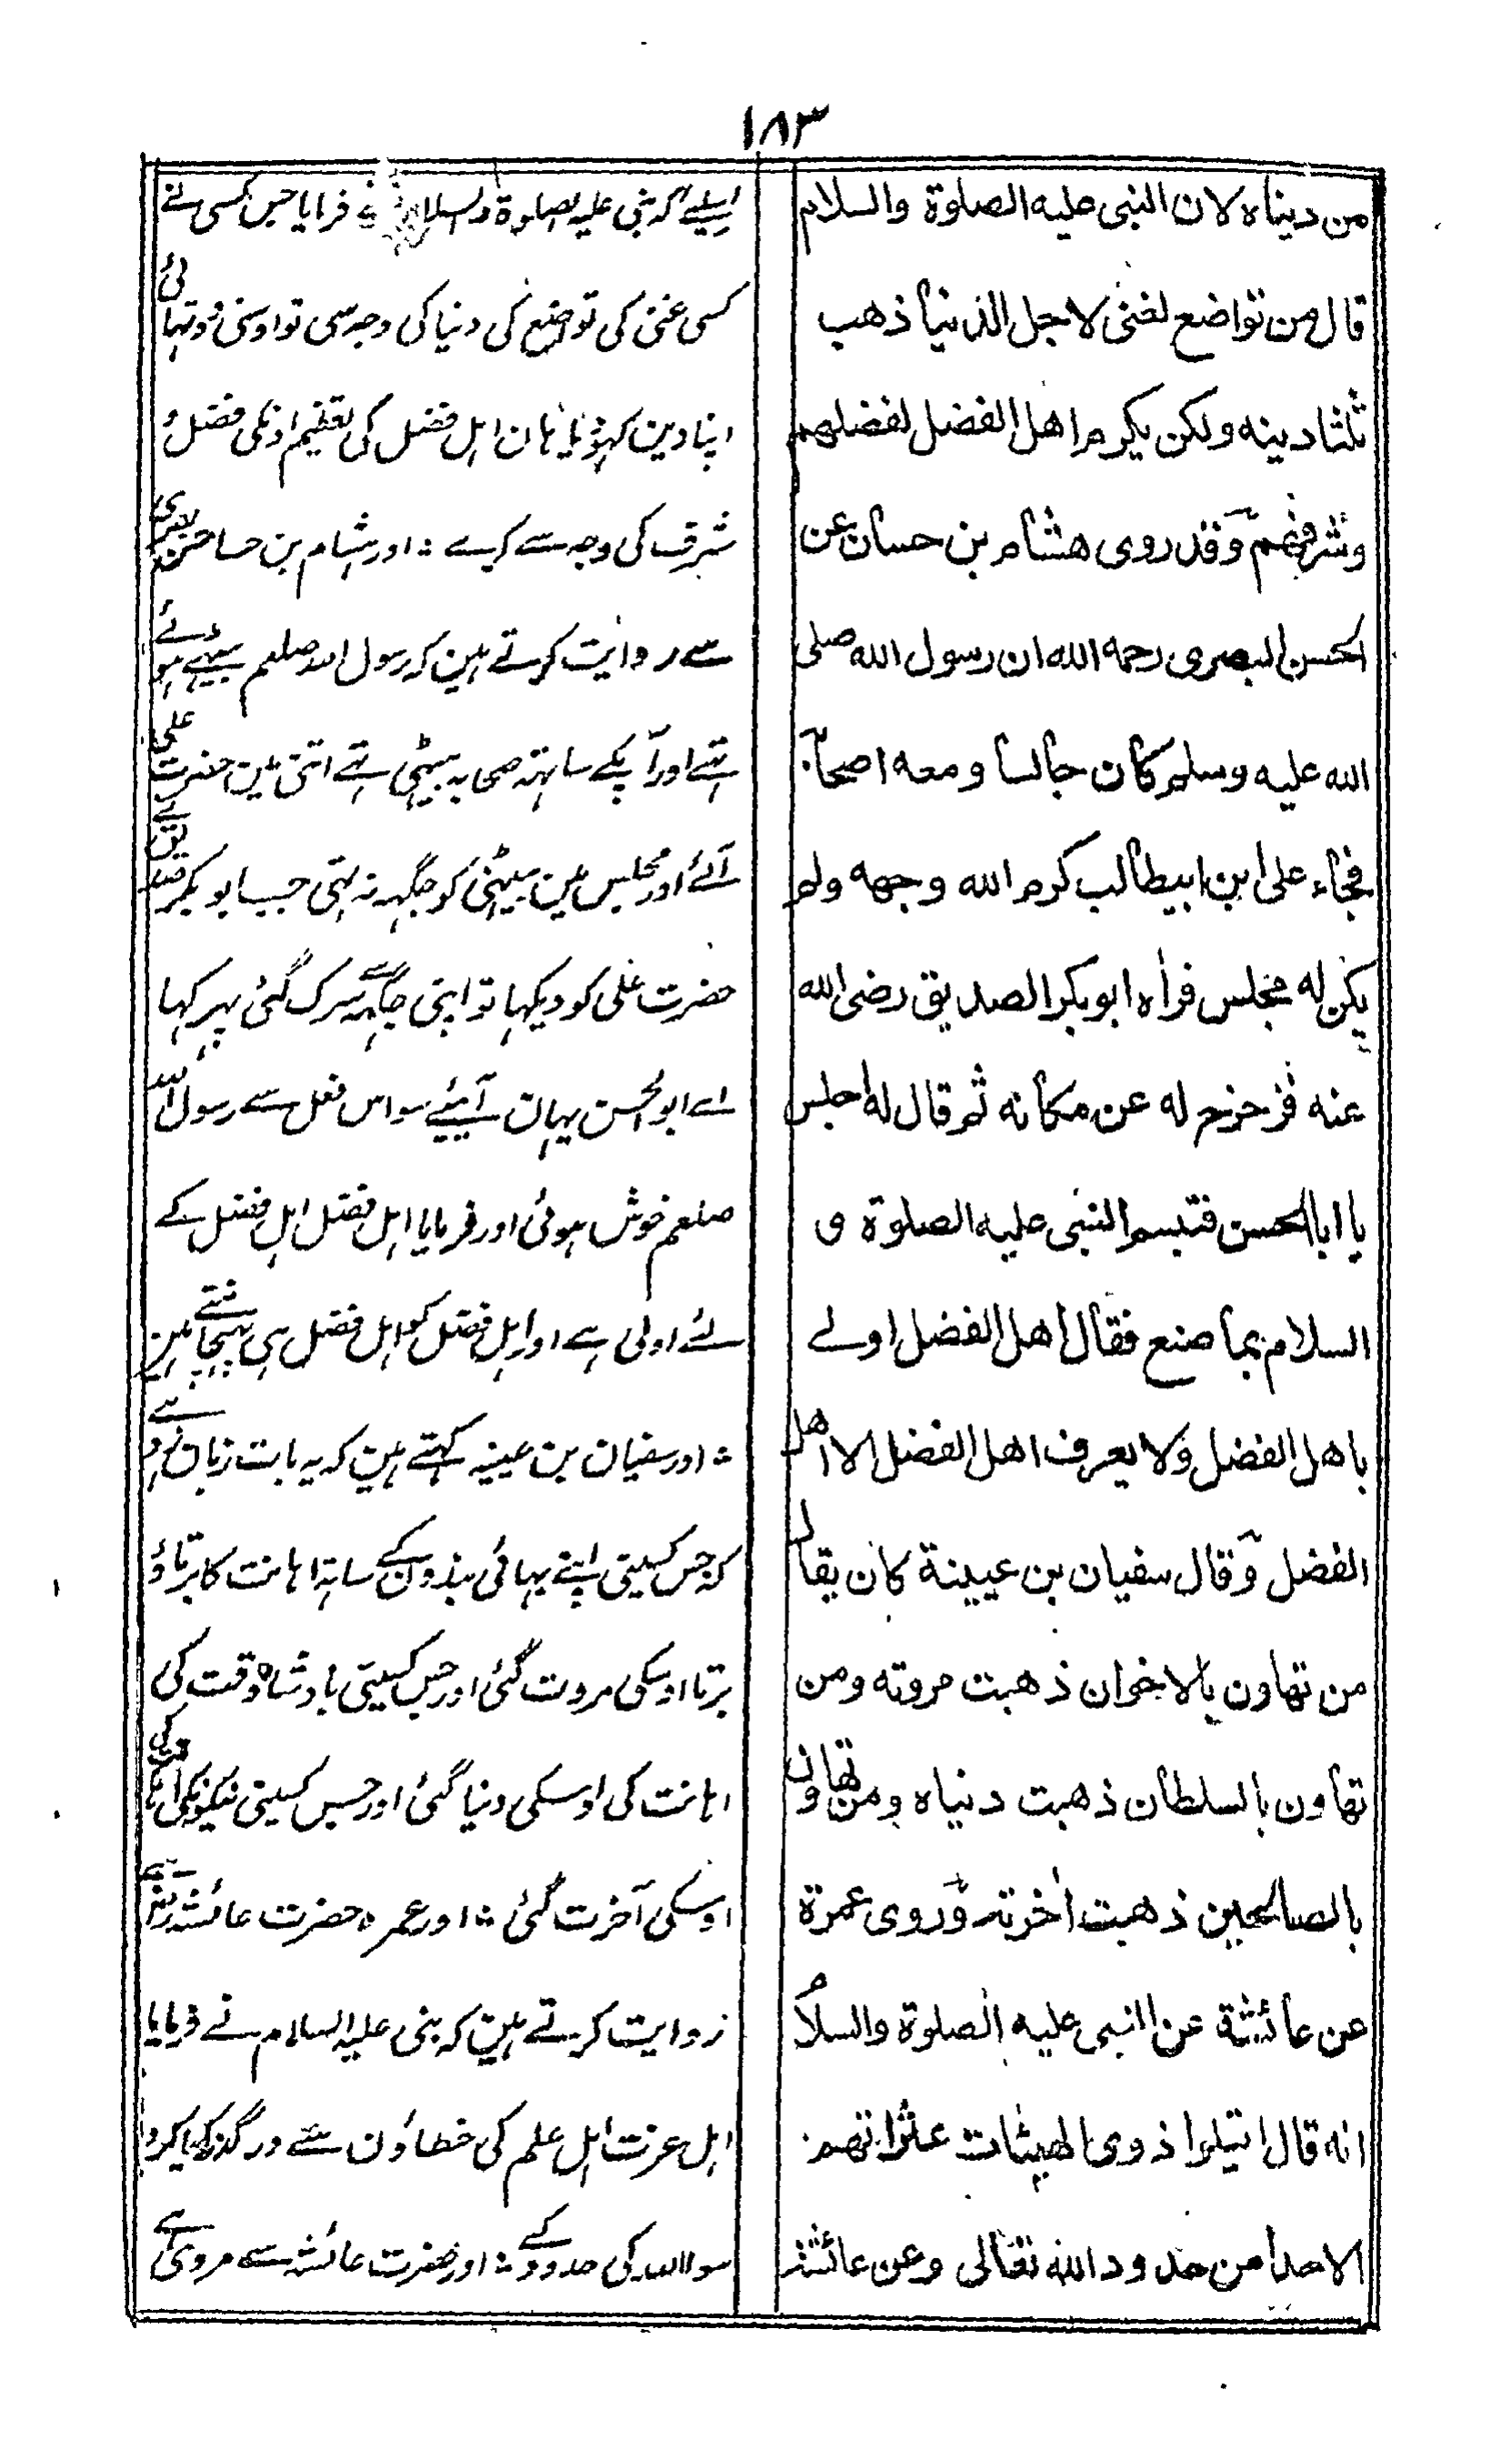 ١٨٣
من ديناه لان النبی عليه الصلوة والسلام
قال من تواضع لغنی لاجل الدنيا ذهب
ثلثا دينه ولکن يکرم اهل الفضل لفضلهم
وشرفهم وقد روی هشام بن حسان عن
الحسن البصری رحمه الله ان رسول الله صلی
الله عليه وسلم کان جالسا ومعه اصحابه
فجاء علی ابن ابيطالب کرم الله وجهه ولم
يکن له مجلس فراٰه ابوبکر الصديق رضی الله
عنه فزحزح له عن مکانه ثم قال له اجلس
يا ابا الحسن فتبسم النبی عليه الصلوة و
السلام بما صنع فقال اهل الفضل اولے
باهل الفضل ولا يعرف اهل الفضل الا اهل
الفضل وقال سفيان بن عيينة کان يقال
من تهاون بالاخوان ذهبت مروته ومن
تهاون بالسلطان ذهبت دنياه ومن تهاون
بالصالحين ذهبت اٰخرته وروی عمرة
عن عائشة عن النبی عليه الصلوة والسلام
انه قال اقيلوا ذوی الهيئات عثراتهم
الاحدا من حدود الله تعالی وعن عائشة
اسلیے کہ نبی علیہ الصلوة والسلام نے فرمایا جس کسی نے
کسی غنی کی تواضع کی دنیا کی وجہ سی تو اوسنی دوتہائی
اپنا دین کہویا ہان اہل فضل کی تعظیم اونکی فضل و
شرف کی وجہ سے کرے ؞ اور ہشام بن حسان حسن بصری
سے روایت کرتے ہین کہ رسول اللہ صلعم بیٹہے ہوئے
تہے اور آپکے ساتہہ صحابہ بیٹہی تہے اتنی مین حضرت علی
آئے اور مجلس مین بیٹہنی کو جگہہ نہ تہی جب ابوبکر صدیق نے
حضرت علی کو دیکہا تو اپنی جگہہ سے سرک گئی پہر کہا
اے ابوالحسن یہان آئیے سو اس فعل سے رسول اللہ
صلعم خوش ہوئی اور فرمایا اہل فضل اہل فضل کے
لئے اولی ہے اور اہل فضل کو اہل فضل ہی پہچانتے ہین
؞ اور سفیان بن عیینہ کہتے ہین کہ یہ بات زبان زد ہے
کہ جس کسیتی اپنے بہائی بندون کے ساتہہ اہانت کا برتاؤ
برتا اوسکی مروت گئی اور جس کسیتی بادشاہ وقت کی
اہانت کی اوسکی دنیا گئی اور جس کسیتی نیکونکی اہانت کی
اوسکی آخرت گئی ؞ اور عمرہ حضرت عائشہ رض سے
روایت کرتے ہین کہ نبی علیہ السلام نے فرمایا
اہل عزت اہل علم کی خطاؤن سے درگذر کیا کرو
سوا اللہ کی حدود کے ؞ اور حضرت عائشہ سے مروی ہے